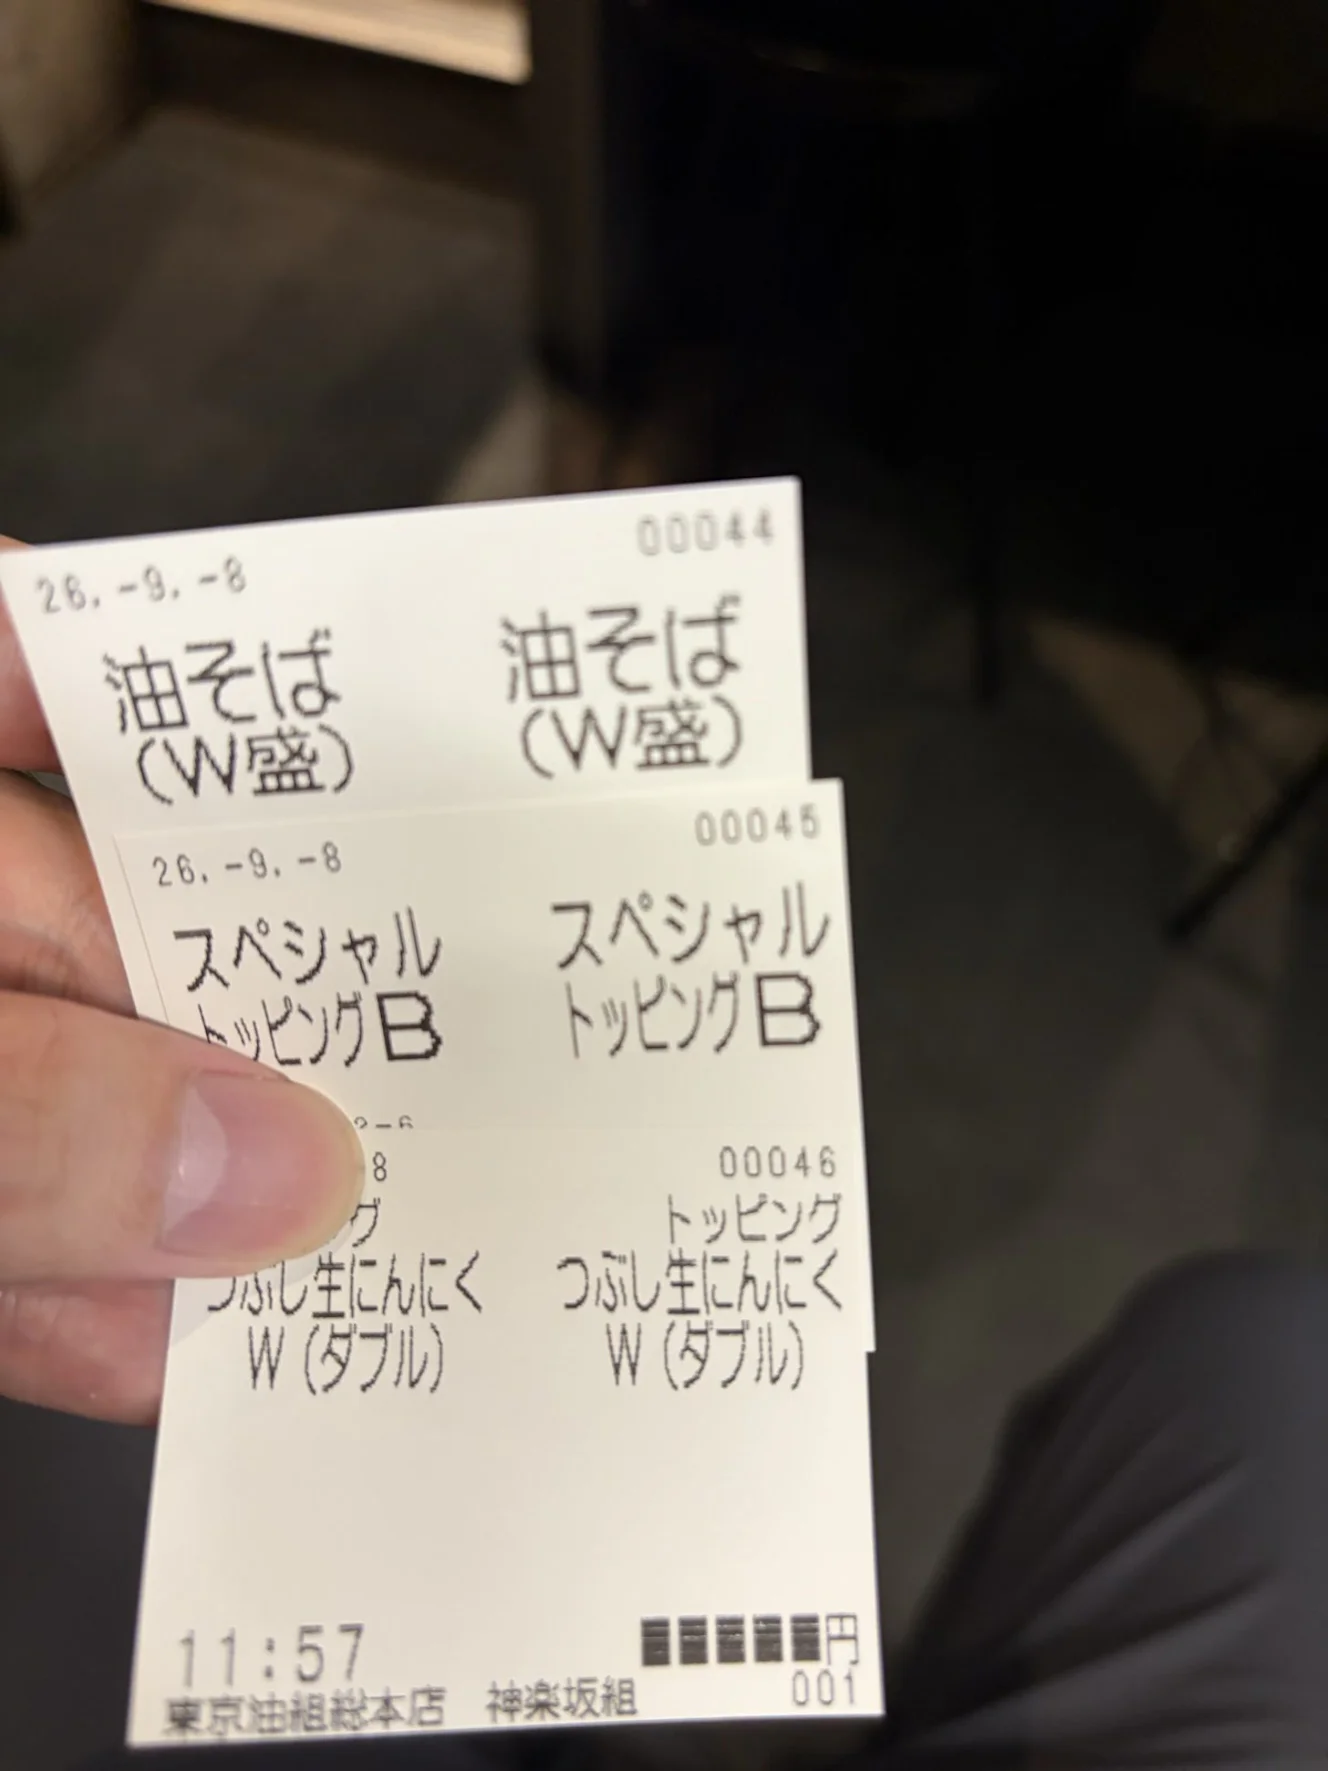 26.-9.-8 00044
油そば 油そば
(W盛) (W盛)
26.-9.-8 00045
スペシャル スペシャル
トッピングB トッピングB
2-6
8 00046
グ トッピング
つぶし生にんにく つぶし生にんにく
W(ダブル) W(ダブル)
11:57 円
東京油組総本店 神楽坂組 001